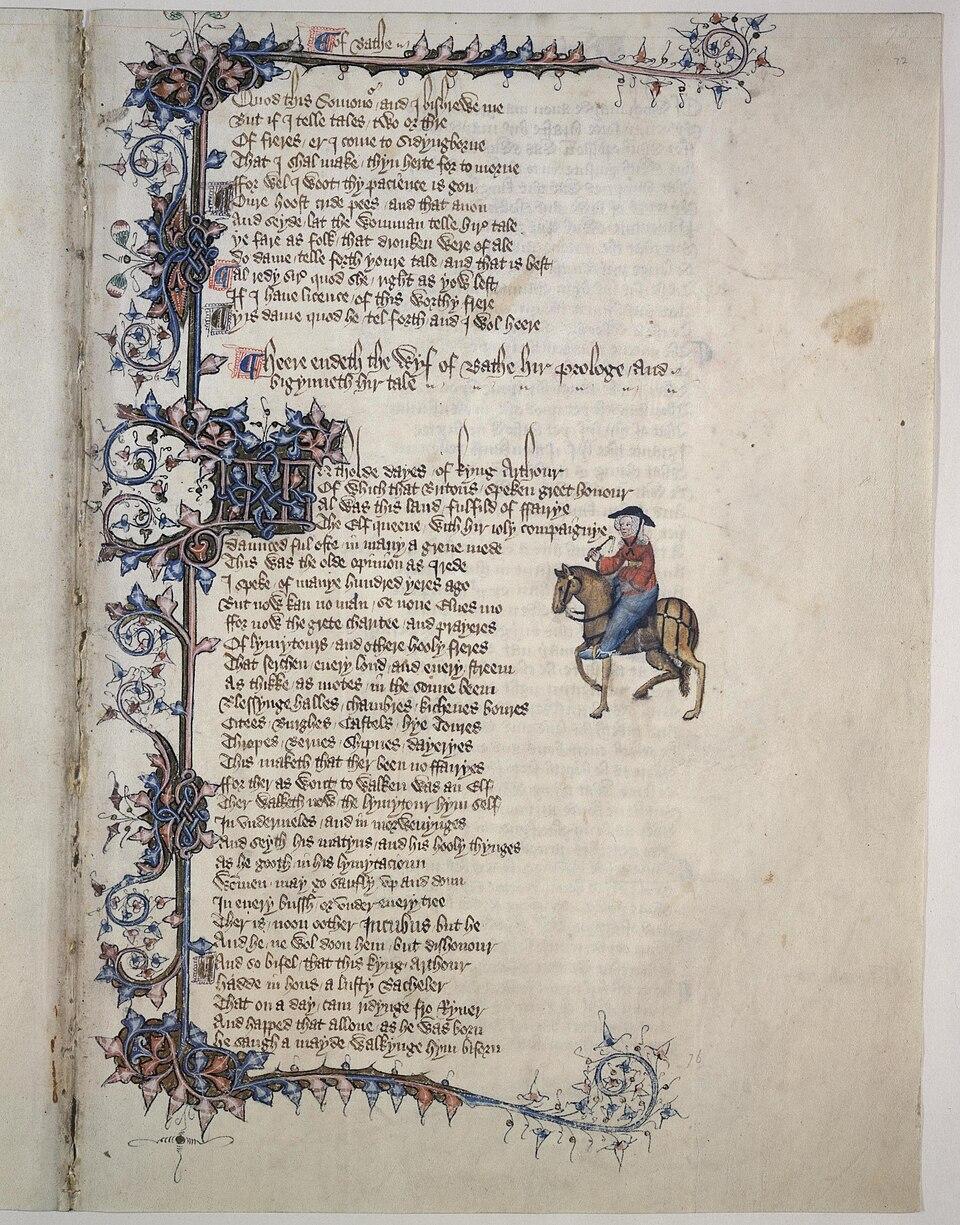 of Bathe
Quod this Somono and I bishrewe me
But if I telle tales two or thre
Of freres er I come to Sidyngborne
That I shal make thyn herte for to morne
ffor wel I woot thy pacience is gon
Oure hoost cride pees and that anon
And seyde lat the womman telle hir tale
ye fare as folk that dronken were of ale
Do dame telle forth youre tale and that is best
Al redy sir quod she right as yow lest
If I haue licence of this worthy frere
yis dame quod he tel forth and I wol heere
Heere endeth the Wyf of Bathe hir prologe and
bigynneth hir tale
In tholde dayes of kyng Arthour
Of which that Britons speken greet honour
Al was this land fulfild of ffairye
The Elf queene with hir ioly compaignye
daunced ful ofte in many a grene mede
This was the olde opinion as I rede
I speke of manye hundred yeres ago
But now kan no man se none Elues mo
ffor now the grete charitee and prayeres
Of lymytours and othere hooly freres
That serchen euery lond and euery streem
As thikke as motes in the sonne beem
Blessynge halles chambres kichenes boures
Citees Burghes Castels hye Toures
Thropes Bernes Shipnes dayeryes
This maketh that ther been no ffairyes
ffor ther as wont to walken was an Elf
Ther walketh now the lymytour hym self
In vndermeles and in morwenynges
And seyth his matyns and his hooly thynges
As he gooth in his lymytacioun
Wommen may go saufly vp and doun
In euery bussh or vnder euery tree
Ther is noon oother Incubus but he
And he ne wol doon hem but dishonour
And so bifel that this kyng Arthour
hadde in hous a lusty Bacheler
That on a day cam ridynge fro Ryuer
And happed that allone as he was born
he saugh a mayde walkynge hym biforn
72